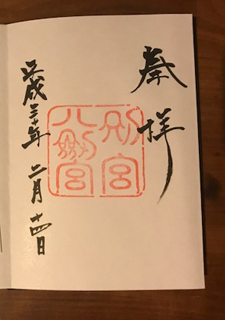 奉拝
別宮
八剱宮
平成三十年 二月十四日